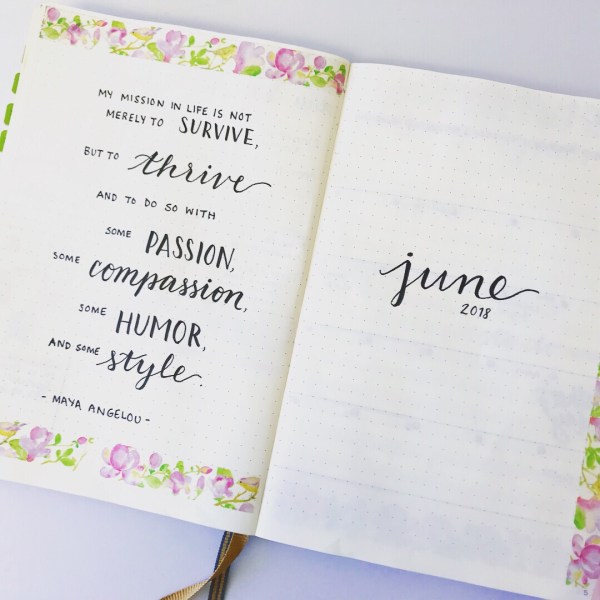 MY MISSION IN LIFE IS NOT
MERELY TO SURVIVE,
BUT TO thrive
AND TO DO SO WITH
SOME PASSION,
SOME compassion,
SOME HUMOR,
AND SOME style.
- MAYA ANGELOU -
june
2018